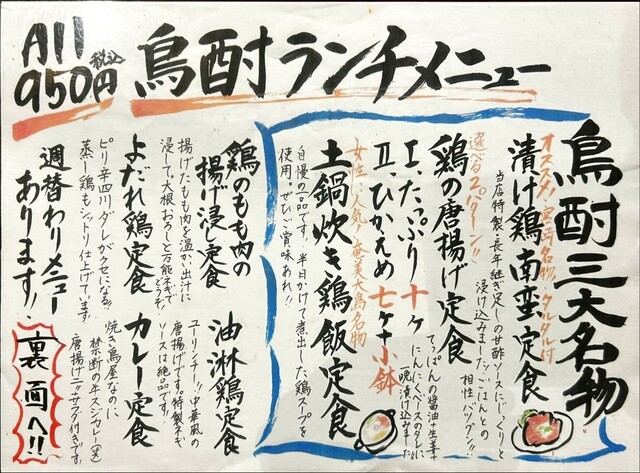 All 950円 税込
鳥酎ランチメニュー
鳥酎三大名物
オススメ!宮崎名物!タルタル付
漬け鶏南蛮定食
当店特製・長年継ぎ足しの甘酢ソースにじっくりと
浸け込みました!ごはんとの
相性バツグン!!
選べる2パターン!!
鶏の唐揚げ定食
I.たっぷり十ヶ
II.ひかえめ七ヶ+小鉢
てっぱんの醤油+生姜+
にんにくベースのタレに
一晩漬け込みました
女性に人気!奄美大島名物
土鍋炊き鶏飯定食
自慢の一品です!半日かけて煮出した鶏スープを
使用。ぜひご賞味あれ!!
鶏のもも肉の
揚げ浸し定食
揚げたもも肉を温か出汁に
浸して。大根おろしと万能ネギで
どうぞ!
よだれ鶏定食
ピリ辛四川ダレがクセになる!!
蒸し鶏もシットリ仕上げています!
油淋鶏定食
ユーリンチー!!中華風の
唐揚げです。特製ネギ
ソースは絶品です。
カレー定食
焼き鳥屋なのに
禁断の牛スジカレー(笑)
唐揚げ二ヶサラダ付きです。
週替わりメニュー
あります!!
裏面へ!!